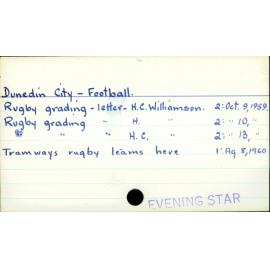 Dunedin City - Football.
Rugby grading - letter - H.C. Williamson. 2: Oct. 9, 1959
Rugby grading " H. " 2: " 10, "
" " H.C. " 2: " 13, "
Tramways rugby teams here 1: Ag 8, 1960
EVENING STAR